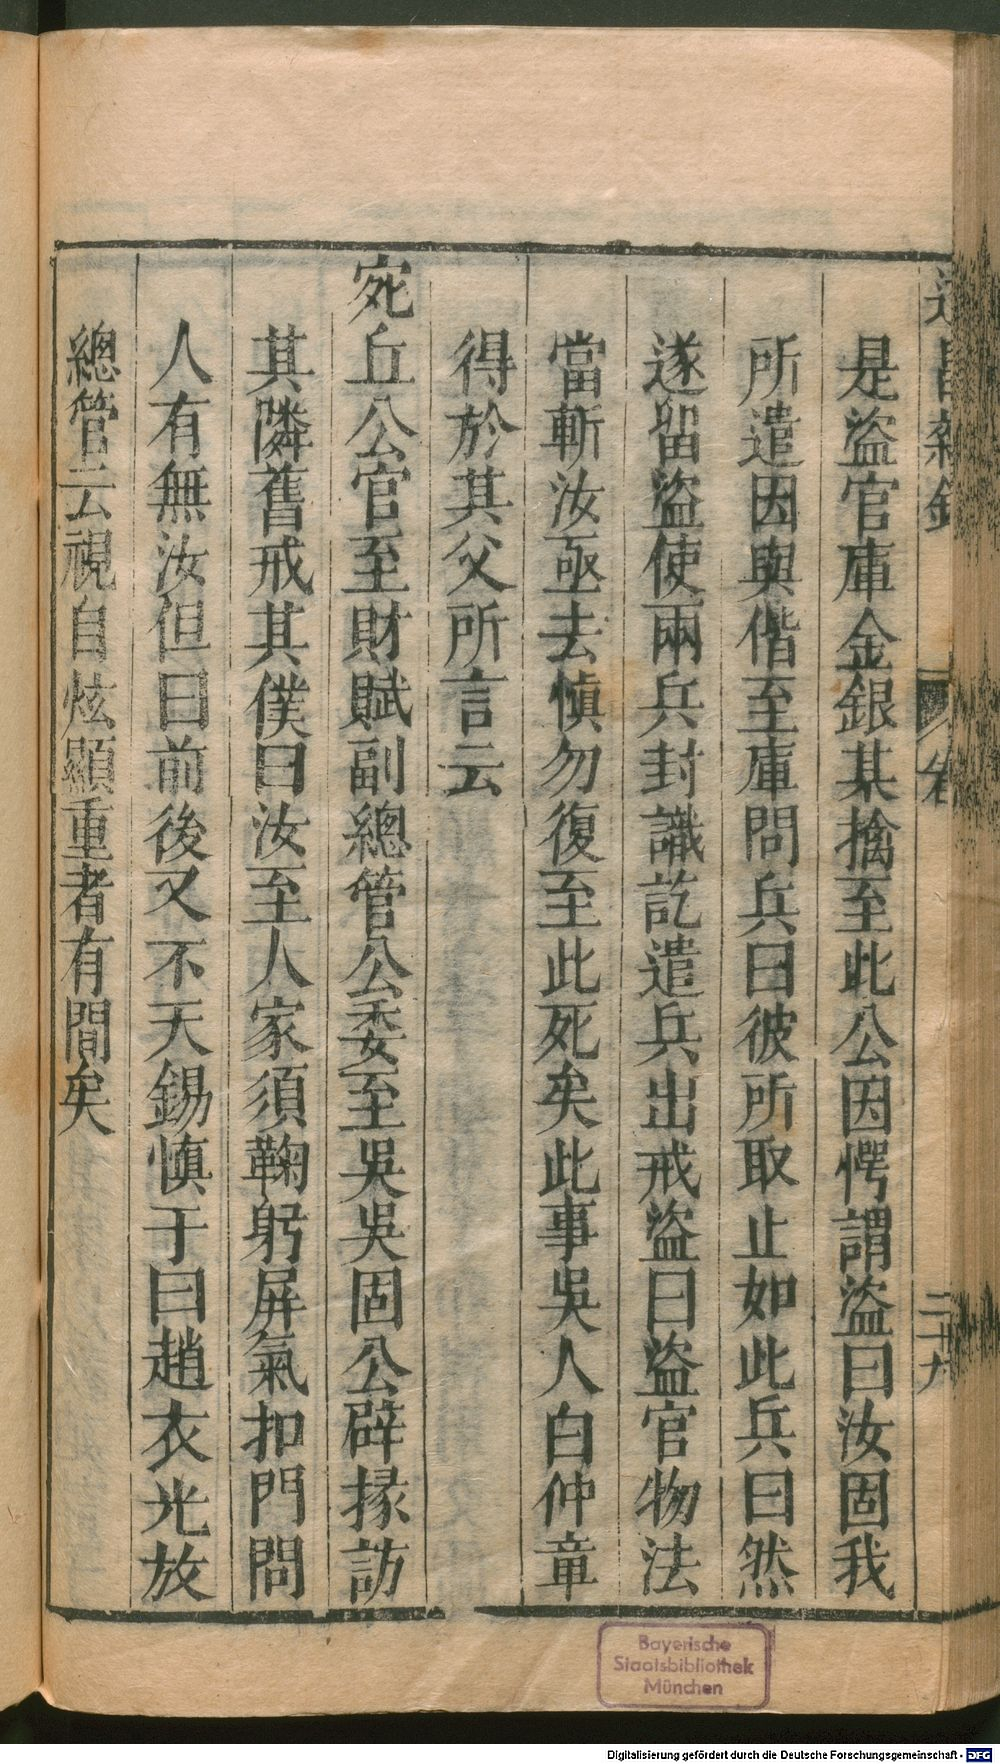 是盜官庫金銀某擒至此公因愕謂盜曰汝固我
所遣因與偕至庫問兵曰彼所取止如此兵曰然
遂留盜使兩兵封識訖遣兵出戒盜曰盜官物法
當斬汝亟去慎勿復至此死矣此事吳人白仲章
得於其父所言云
宛丘公官至財賦副總管公委至吳吳固公辟掾訪
其隣舊戒其僕曰汝至人家須鞠躬屏氣扣門問
人有無汝但曰前後又不天錫慎于曰趙衣光放
總管云視自炫顯重者有間矣
雜錄
卷
二十九
Bayerische
Staatsbibliothek
München
Digitalisierung gefördert durch die Deutsche Forschungsgemeinschaft - DFG